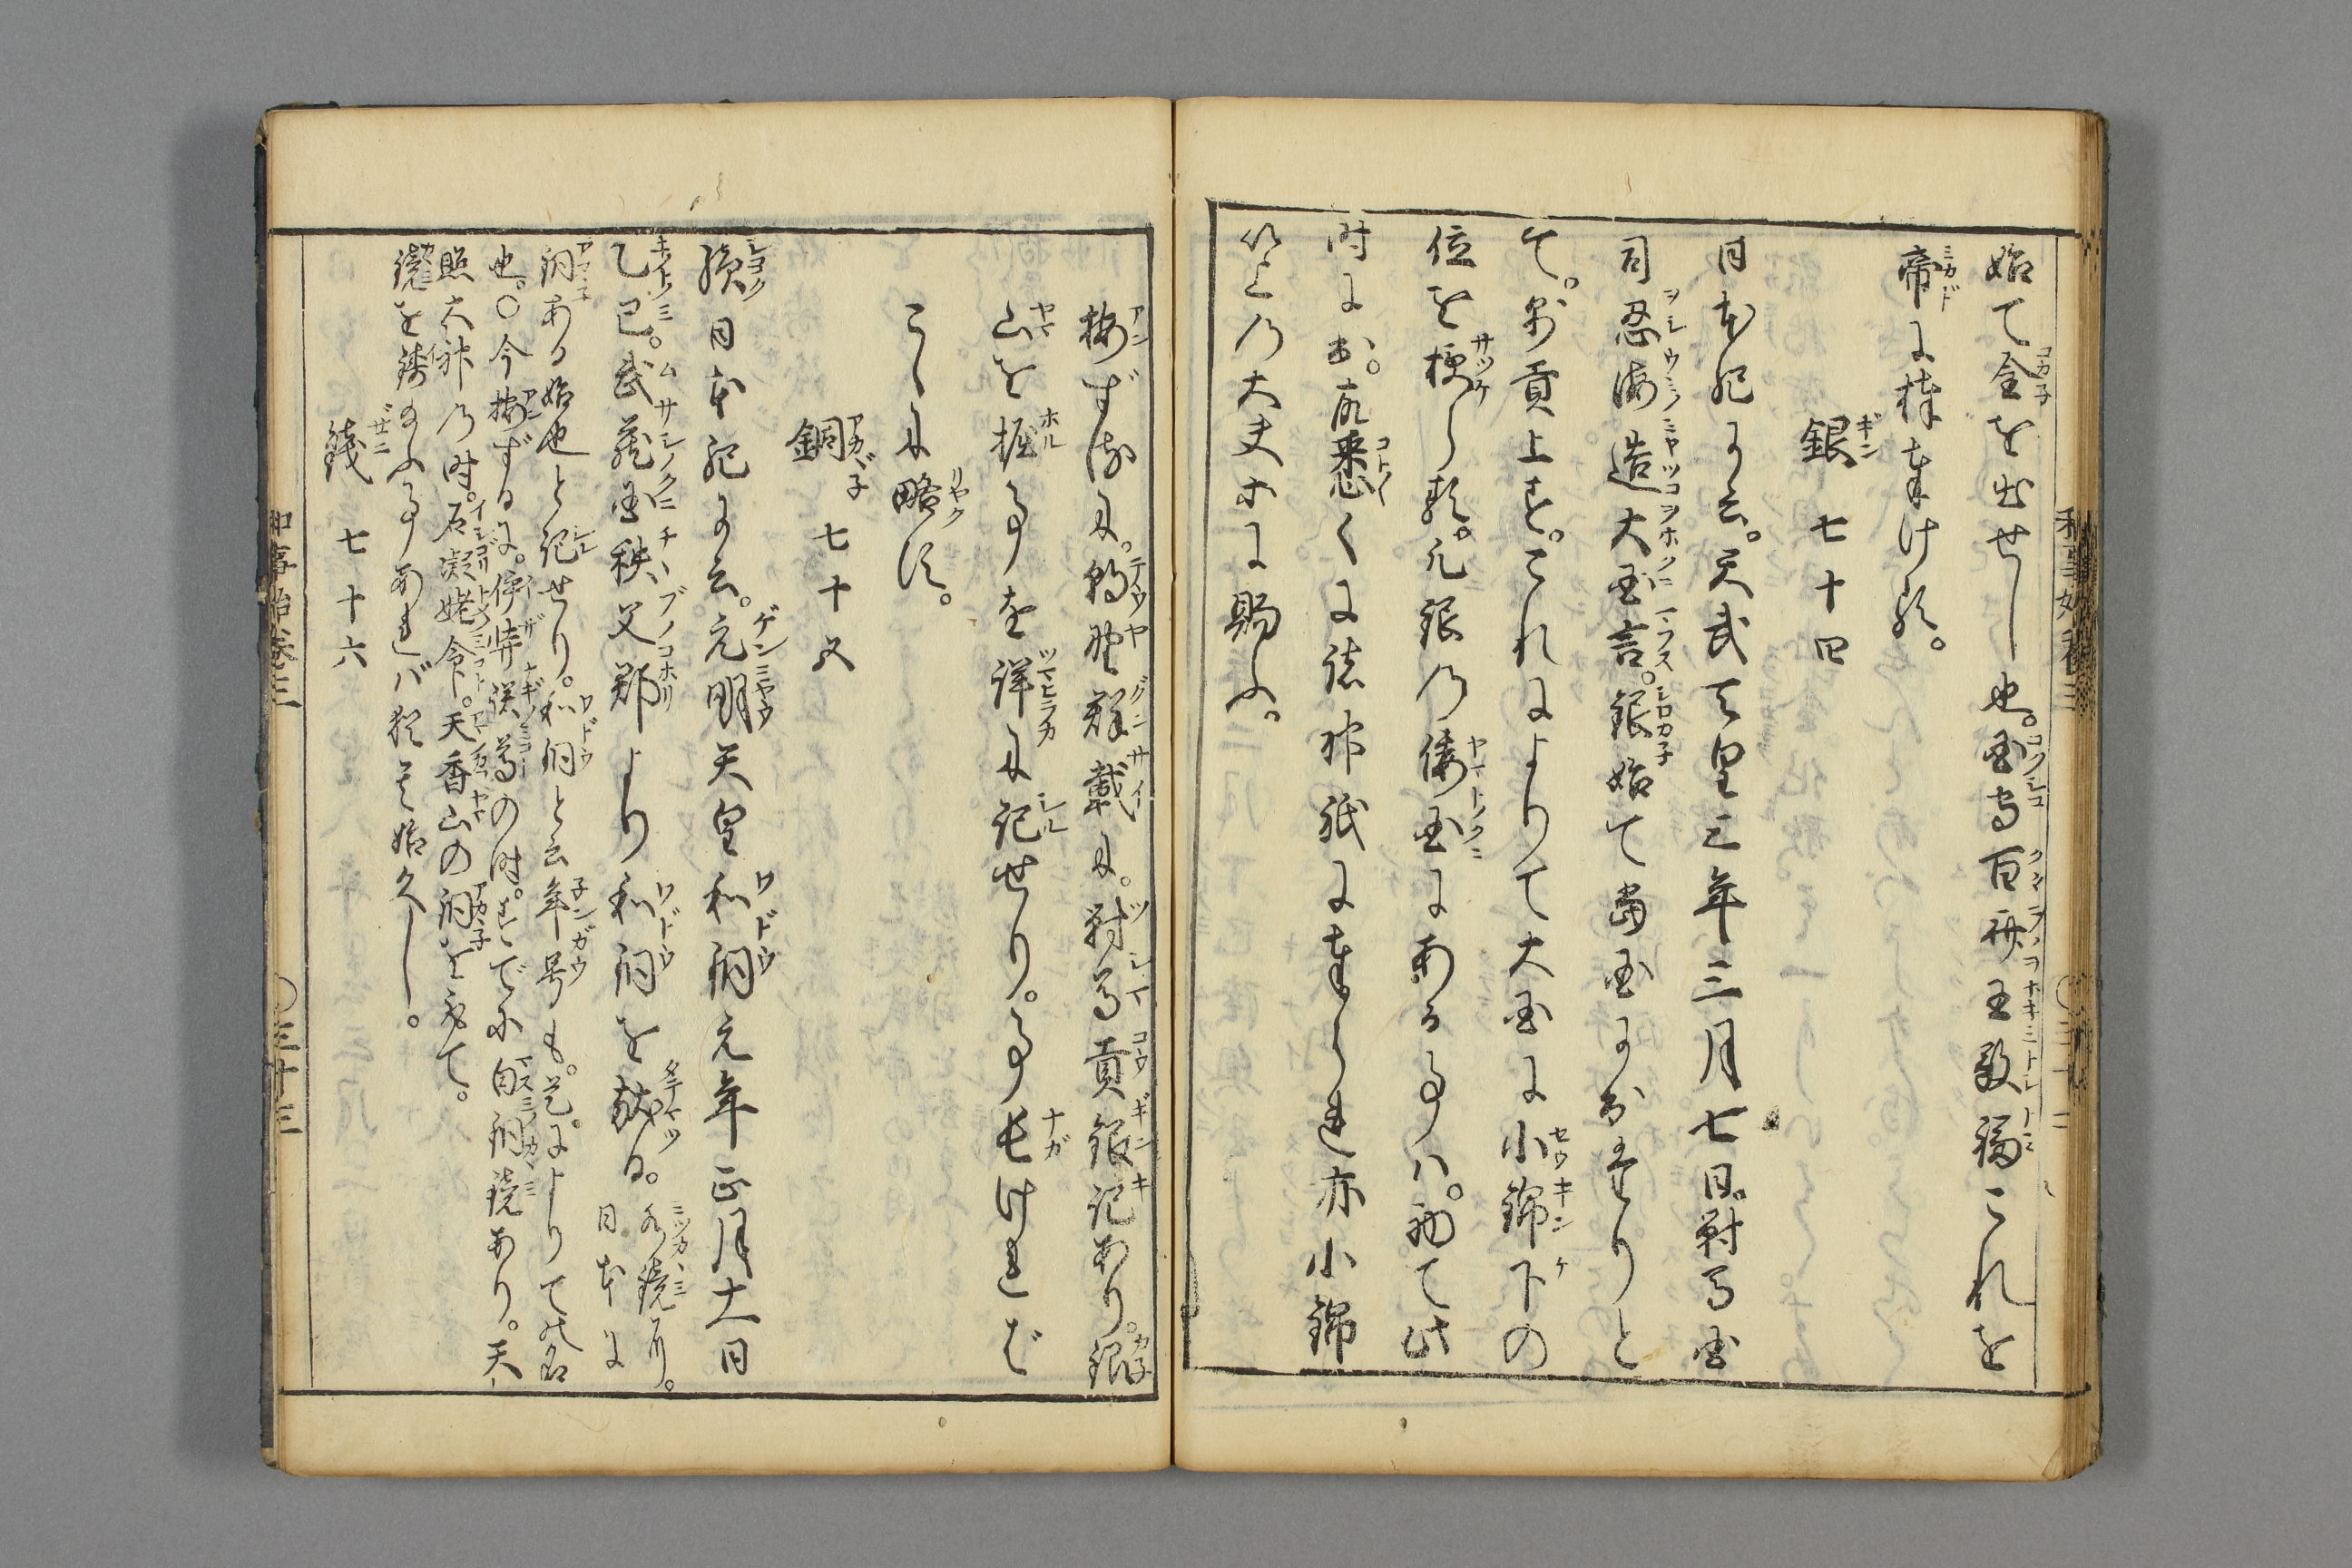 始て金を出せし也。国守百済王敬福これを
帝に捧奉けり。
銀 七十四
日本紀に云。天武天皇三年三月七日。対馬国
司忍海造大国言。銀始て当国に出たりと
て。則貢上す。これによりて大国に小錦下の
位を授らる。凡銀の倭国にある事ハ。初て此
時に出。故悉くに諸神祇に奉られ亦小錦
以上の大夫等に賜ふ。
和事始巻三
按ずるに。朝野群載に。対馬貢銀記あり。銀
山を掘事を詳に記せり。事長ければ
こゝに略す。
銅 七十五
続日本紀に云。元明天皇和銅元年正月十一日
乙巳。武蔵国秩父郡より和銅を献る。水鏡ニ同。日本に
銅ある始也と記せり。和銅と云年号も。是によりて の名
也。〇今按ずるに。伊弉諾尊の時。すでに白銅鏡あり。天
照大神の時。石凝姥令下。天香山の銅を取て。
鏡を鋳給ふ事あれバ猶其始久し。
銭 七十六
和事始巻三 〇三十三